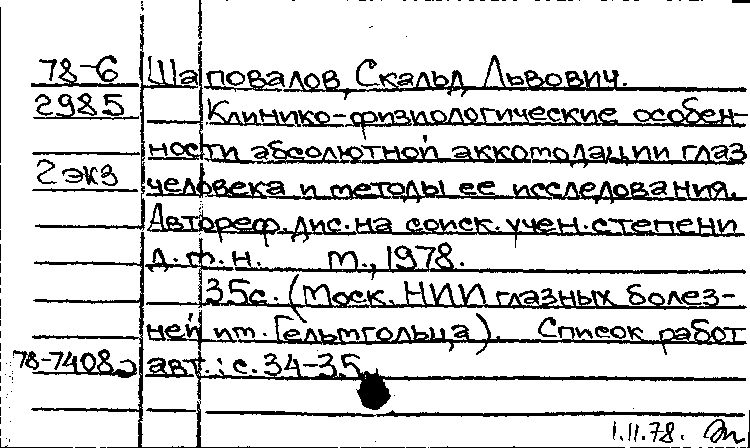 78-6 Шаповалов, Скальд Львович.
2985 Клинико-физиологические особен-
ности абсолютной аккомодации глаз
2 экз человека и методы ее исследования.
Автореф. дис. на соиск. учен. степени
д. м. н. М., 1978.
35с. (Моск. НИИ глазных болез-
ней им. Гельмгольца). Список работ
78-7408 авт.: с. 34-35.
1.11.78.